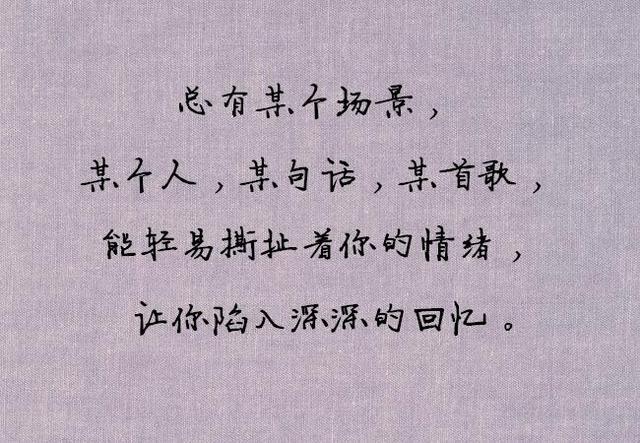 总有某个场景，
某个人，某句话，某首歌，
能轻易撕扯着你的情绪，
让你陷入深深的回忆。